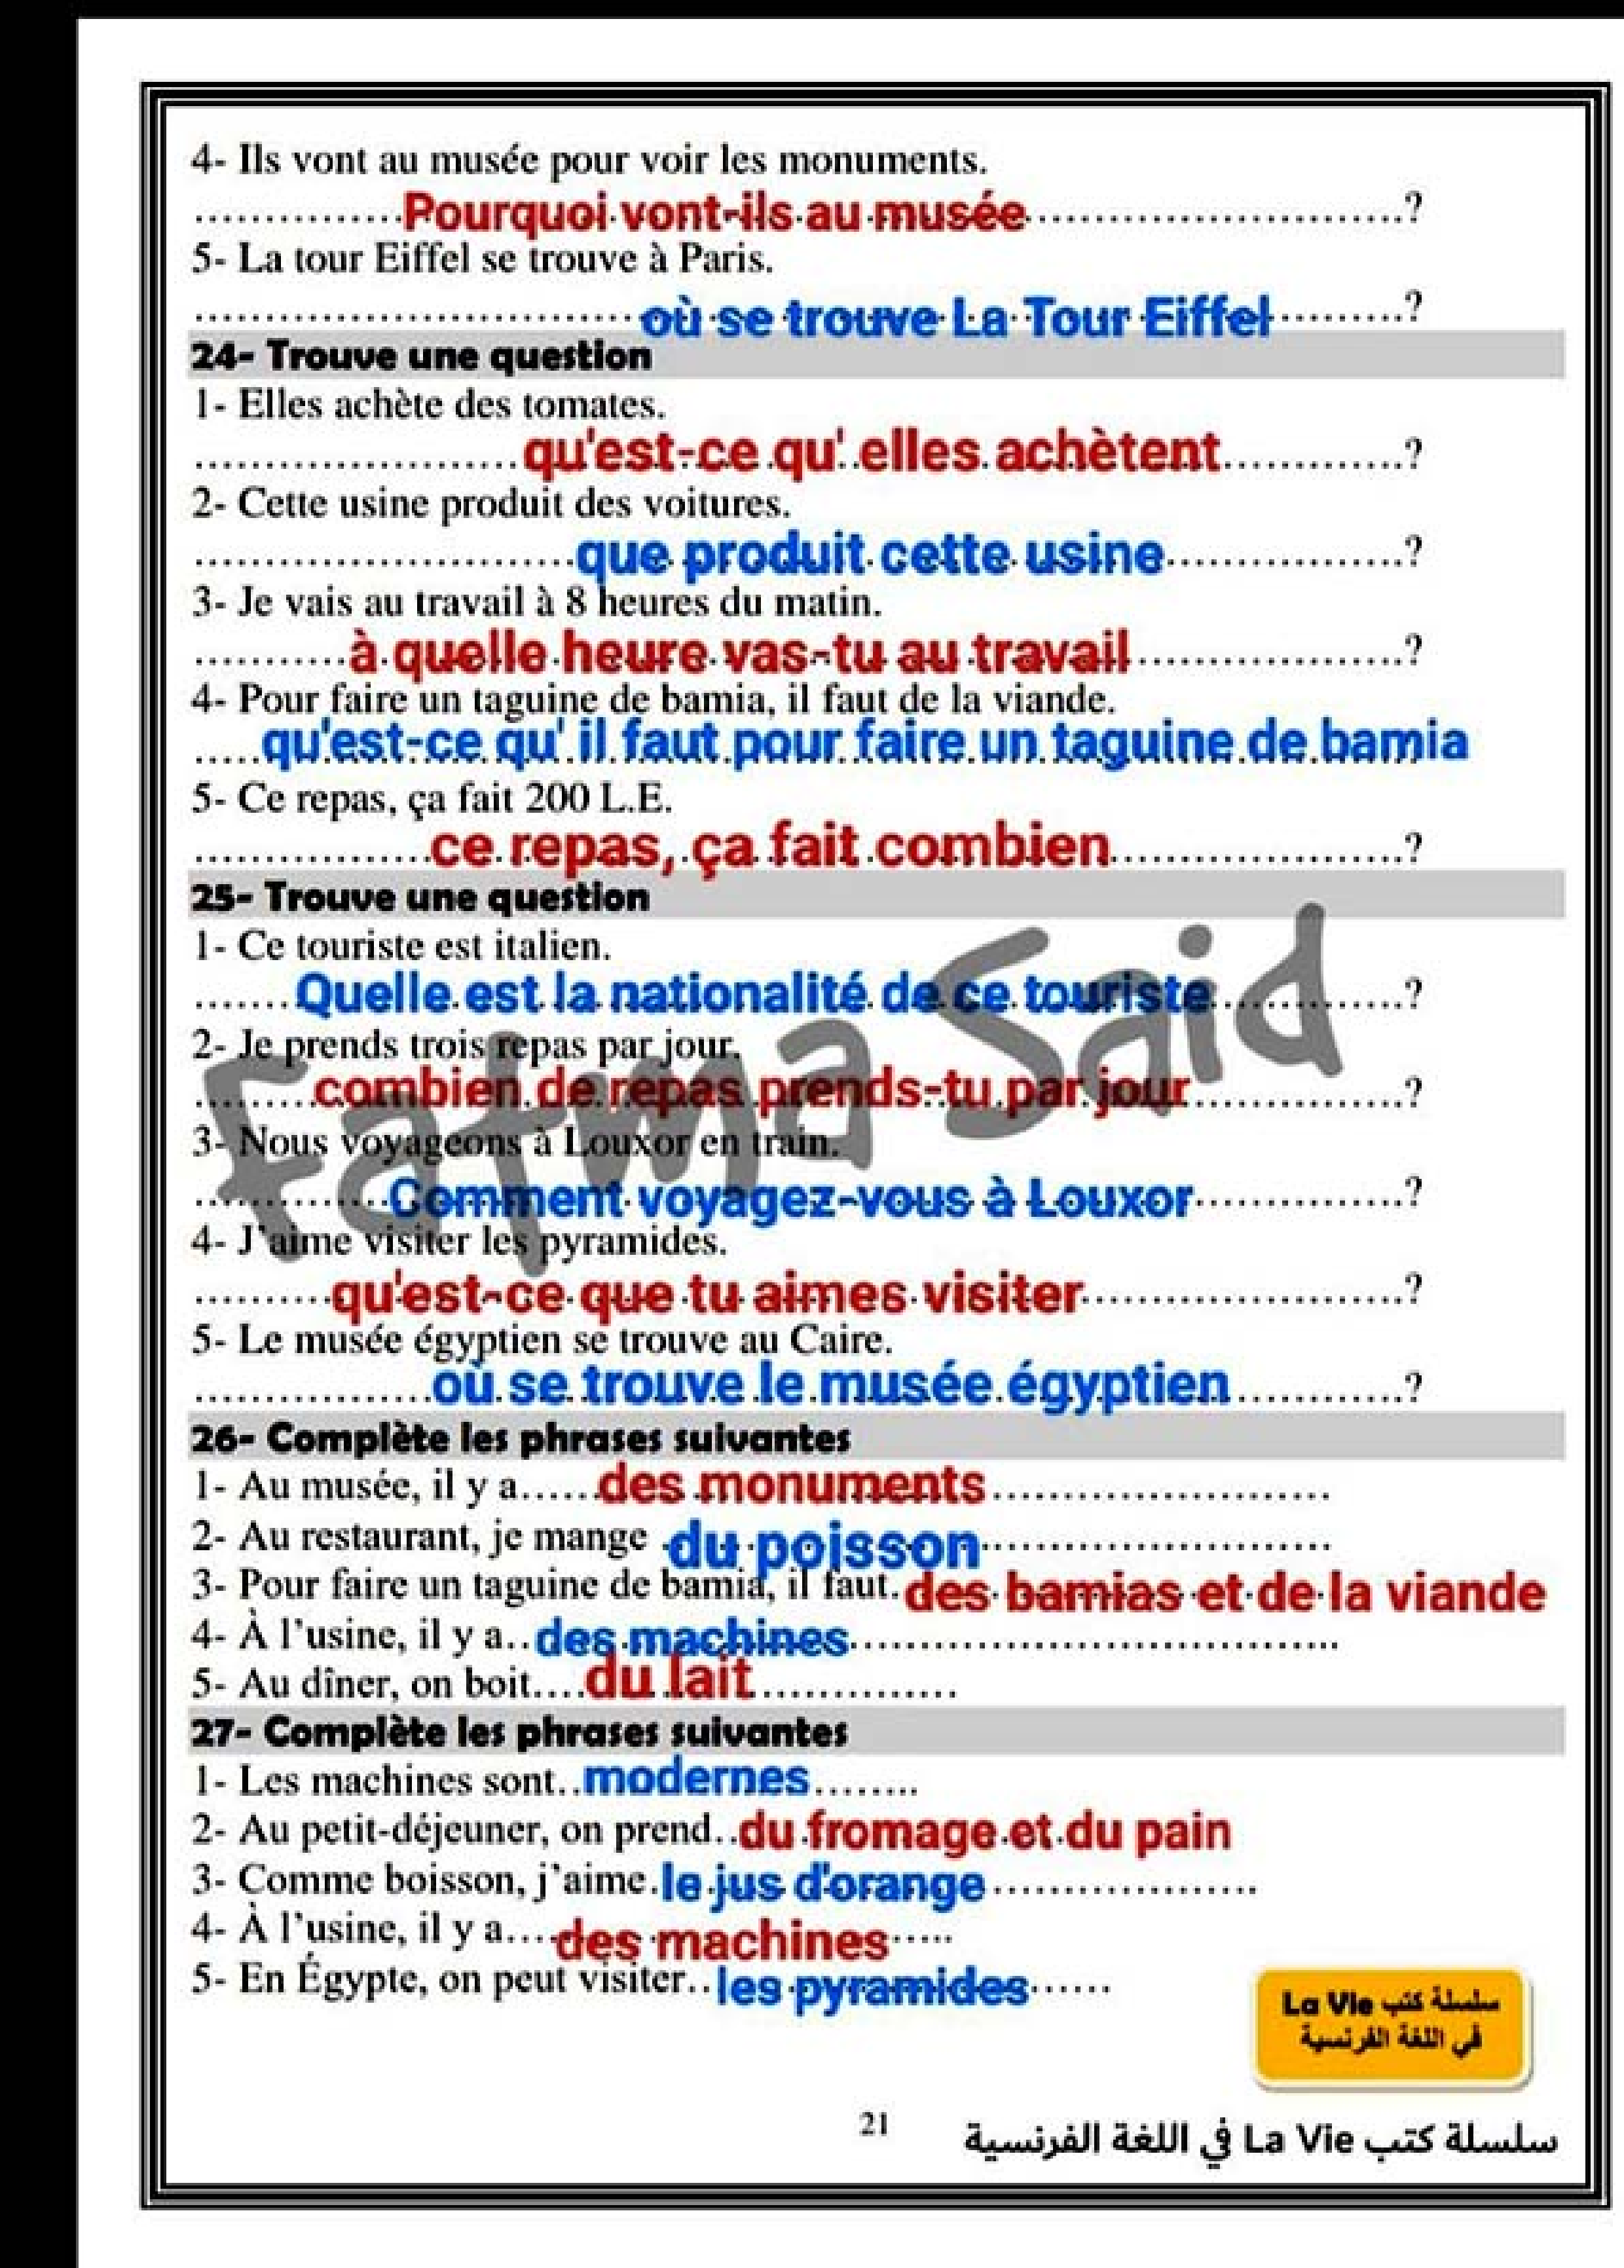 4- Ils vont au musée pour voir les monuments.
...............Pourquoi vont-ils au musée...........................?
5- La tour Eiffel se trouve à Paris.
................................où se trouve La Tour Eiffel.........?
24- Trouve une question
1- Elles achète des tomates.
.......................qu'est-ce qu' elles achètent.............?
2- Cette usine produit des voitures.
...........................que produit cette usine.................?
3- Je vais au travail à 8 heures du matin.
...........à quelle heure vas-tu au travail...................?
4- Pour faire un taguine de bamia, il faut de la viande.
.....qu'est-ce qu' il faut pour faire un taguine de bamia
5- Ce repas, ça fait 200 L.E.
.................ce repas, ça fait combien.....................?
25- Trouve une question
1- Ce touriste est italien.
.......Quelle est la nationalité de ce touriste..............?
2- Je prends trois repas par jour.
.........combien de repas prends-tu par jour...............?
3- Nous voyageons à Louxor en train.
..............Comment voyagez-vous à Louxor...............?
4- J'aime visiter les pyramides.
..........qu'est-ce que tu aimes visiter.......................?
5- Le musée égyptien se trouve au Caire.
.................où se trouve le musée égyptien............?
26- Complète les phrases suivantes
1- Au musée, il y a......des monuments........................
2- Au restaurant, je mange du poisson.........................
3- Pour faire un taguine de bamia, il faut.des bamias et de la viande
4- À l'usine, il y a..des machines...................................
5- Au dîner, on boit....du lait...............
27- Complète les phrases suivantes
1- Les machines sont..modernes........
2- Au petit-déjeuner, on prend..du fromage et du pain
3- Comme boisson, j'aime.le jus d'orange...................
4- À l'usine, il y a...des machines.....
5- En Égypte, on peut visiter..les pyramides......
Fatma Said
سلسلة كتب La Vie
في اللغة الفرنسية
21
سلسلة كتب La Vie في اللغة الفرنسية